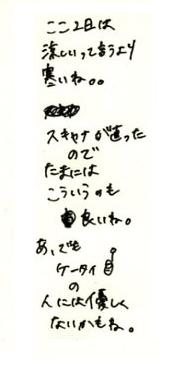 ここ2日は
涼しいって言うより
寒いね。。
スキャナが直った
ので
たまには
こういうのも
良いね。
あ、でも
ケータイ
の
人には優しく
ないかもね。